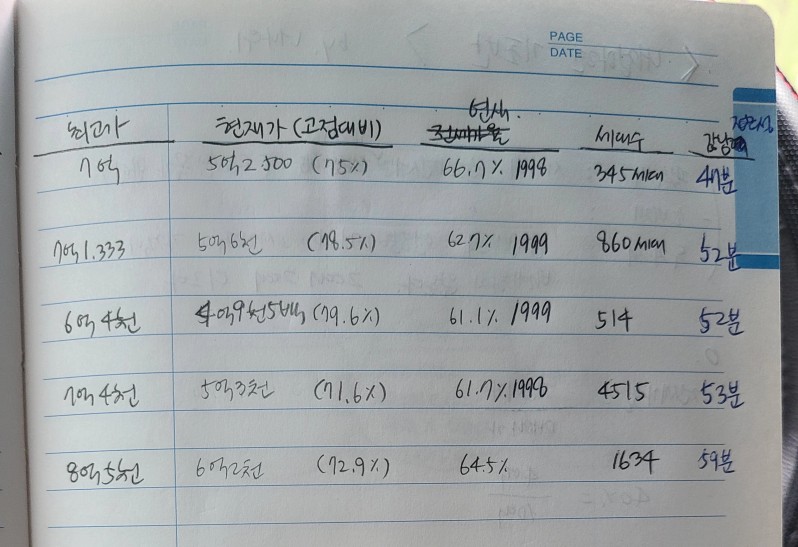 PAGE
DATE
최고가 현재가 (고점대비) 연식. 세대수 강남
7억 5억2500 (75%) 66.7% 1998 345세대 47분
7억1.333 5억6천 (78.5%) 62.7% 1999 860세대 52분
6억4천 4억9천5백 (79.6%) 61.1% 1999 514 52분
7억4천 5억3천 (71.6%) 61.7% 1998 4515 53분
8억5천 6억2천 (72.9%) 64.5% 1634 59분